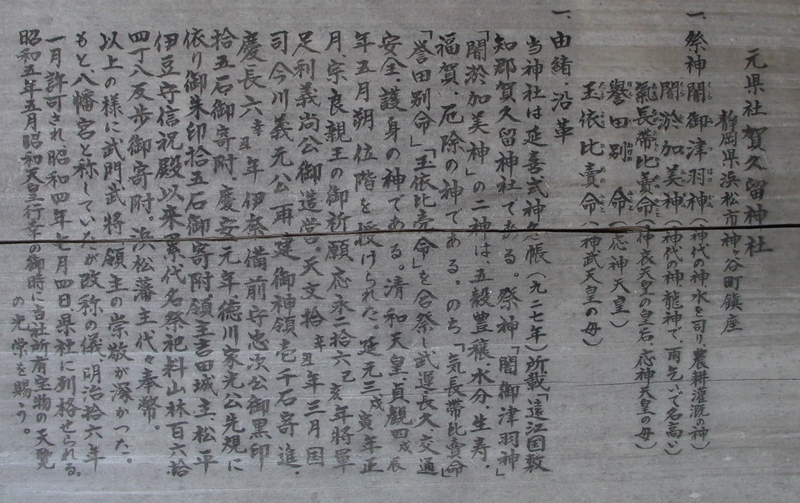 元県社 賀久留神社
静岡県浜松市神ヶ谷町鎮座
一、祭神 闇御津羽神（神代の神、水を司り、農耕灌漑の神）
闇於加美神（神代の神、龍神で、雨乞いで名高い）
氣長帯比賣命（神功天皇の皇后、応神天皇の母）
譽田別命（応神天皇）
玉依比賣命（神武天皇の母）
一、由緒 沿革
当神社は延喜式神名帳（九二七年）所載「遠江国敷
知郡賀久留神社である。祭神「闇御津羽神」
「闇於加美神」の二神は、五穀豊穣水分、生寿、
福賀、厄除の神である。のち「気長帯比賣命」
「誉田別命」「玉依比売命」を合祭し武運長久交通
安全、護身の神である。清和天皇貞観四戊辰
年五月朔位階を授けられた。延元三戊寅年正
月、宗良親王の御祈願、応永二拾六乙亥年将軍
足利義尚公御造営、天文拾辛丑年三月国
司今川義元公再建御神領壱千石寄進、
慶長六辛丑年伊奈備前守忠次公御黒印
拾五石御寄附、慶安元年徳川家光公先規に
依り御朱印拾五石御寄附、領主吉田城主、松平
伊豆守信祝殿以来累代名祭祀料山林百六拾
四丁八反歩御寄附、浜松藩主代々奉幣。
以上の様に武門武将、領主の崇敬が深かった。
もと八幡宮と称していたが改称の儀、明治拾六年
一月許可され昭和四年七月四日県社に列格せられる。
昭和五年五月昭和天皇行幸の御時に当社所有宝物の天覧
の光栄を賜う。